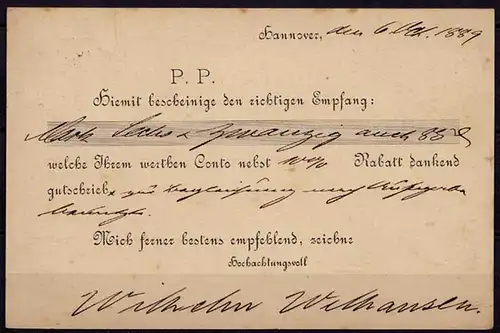 Hannover, den 6 Oct. 1889
P. P.
Hiemit bescheinige den richtigen Empfang:
Mark Sechs & Zwanzig auch 83 d
welche Ihrem werthen Conto nebst Rabatt dankend
gutschrieb
Mich ferner bestens empfehlend, zeichne
Hochachtungsvoll
Wilhelm Welhausen.